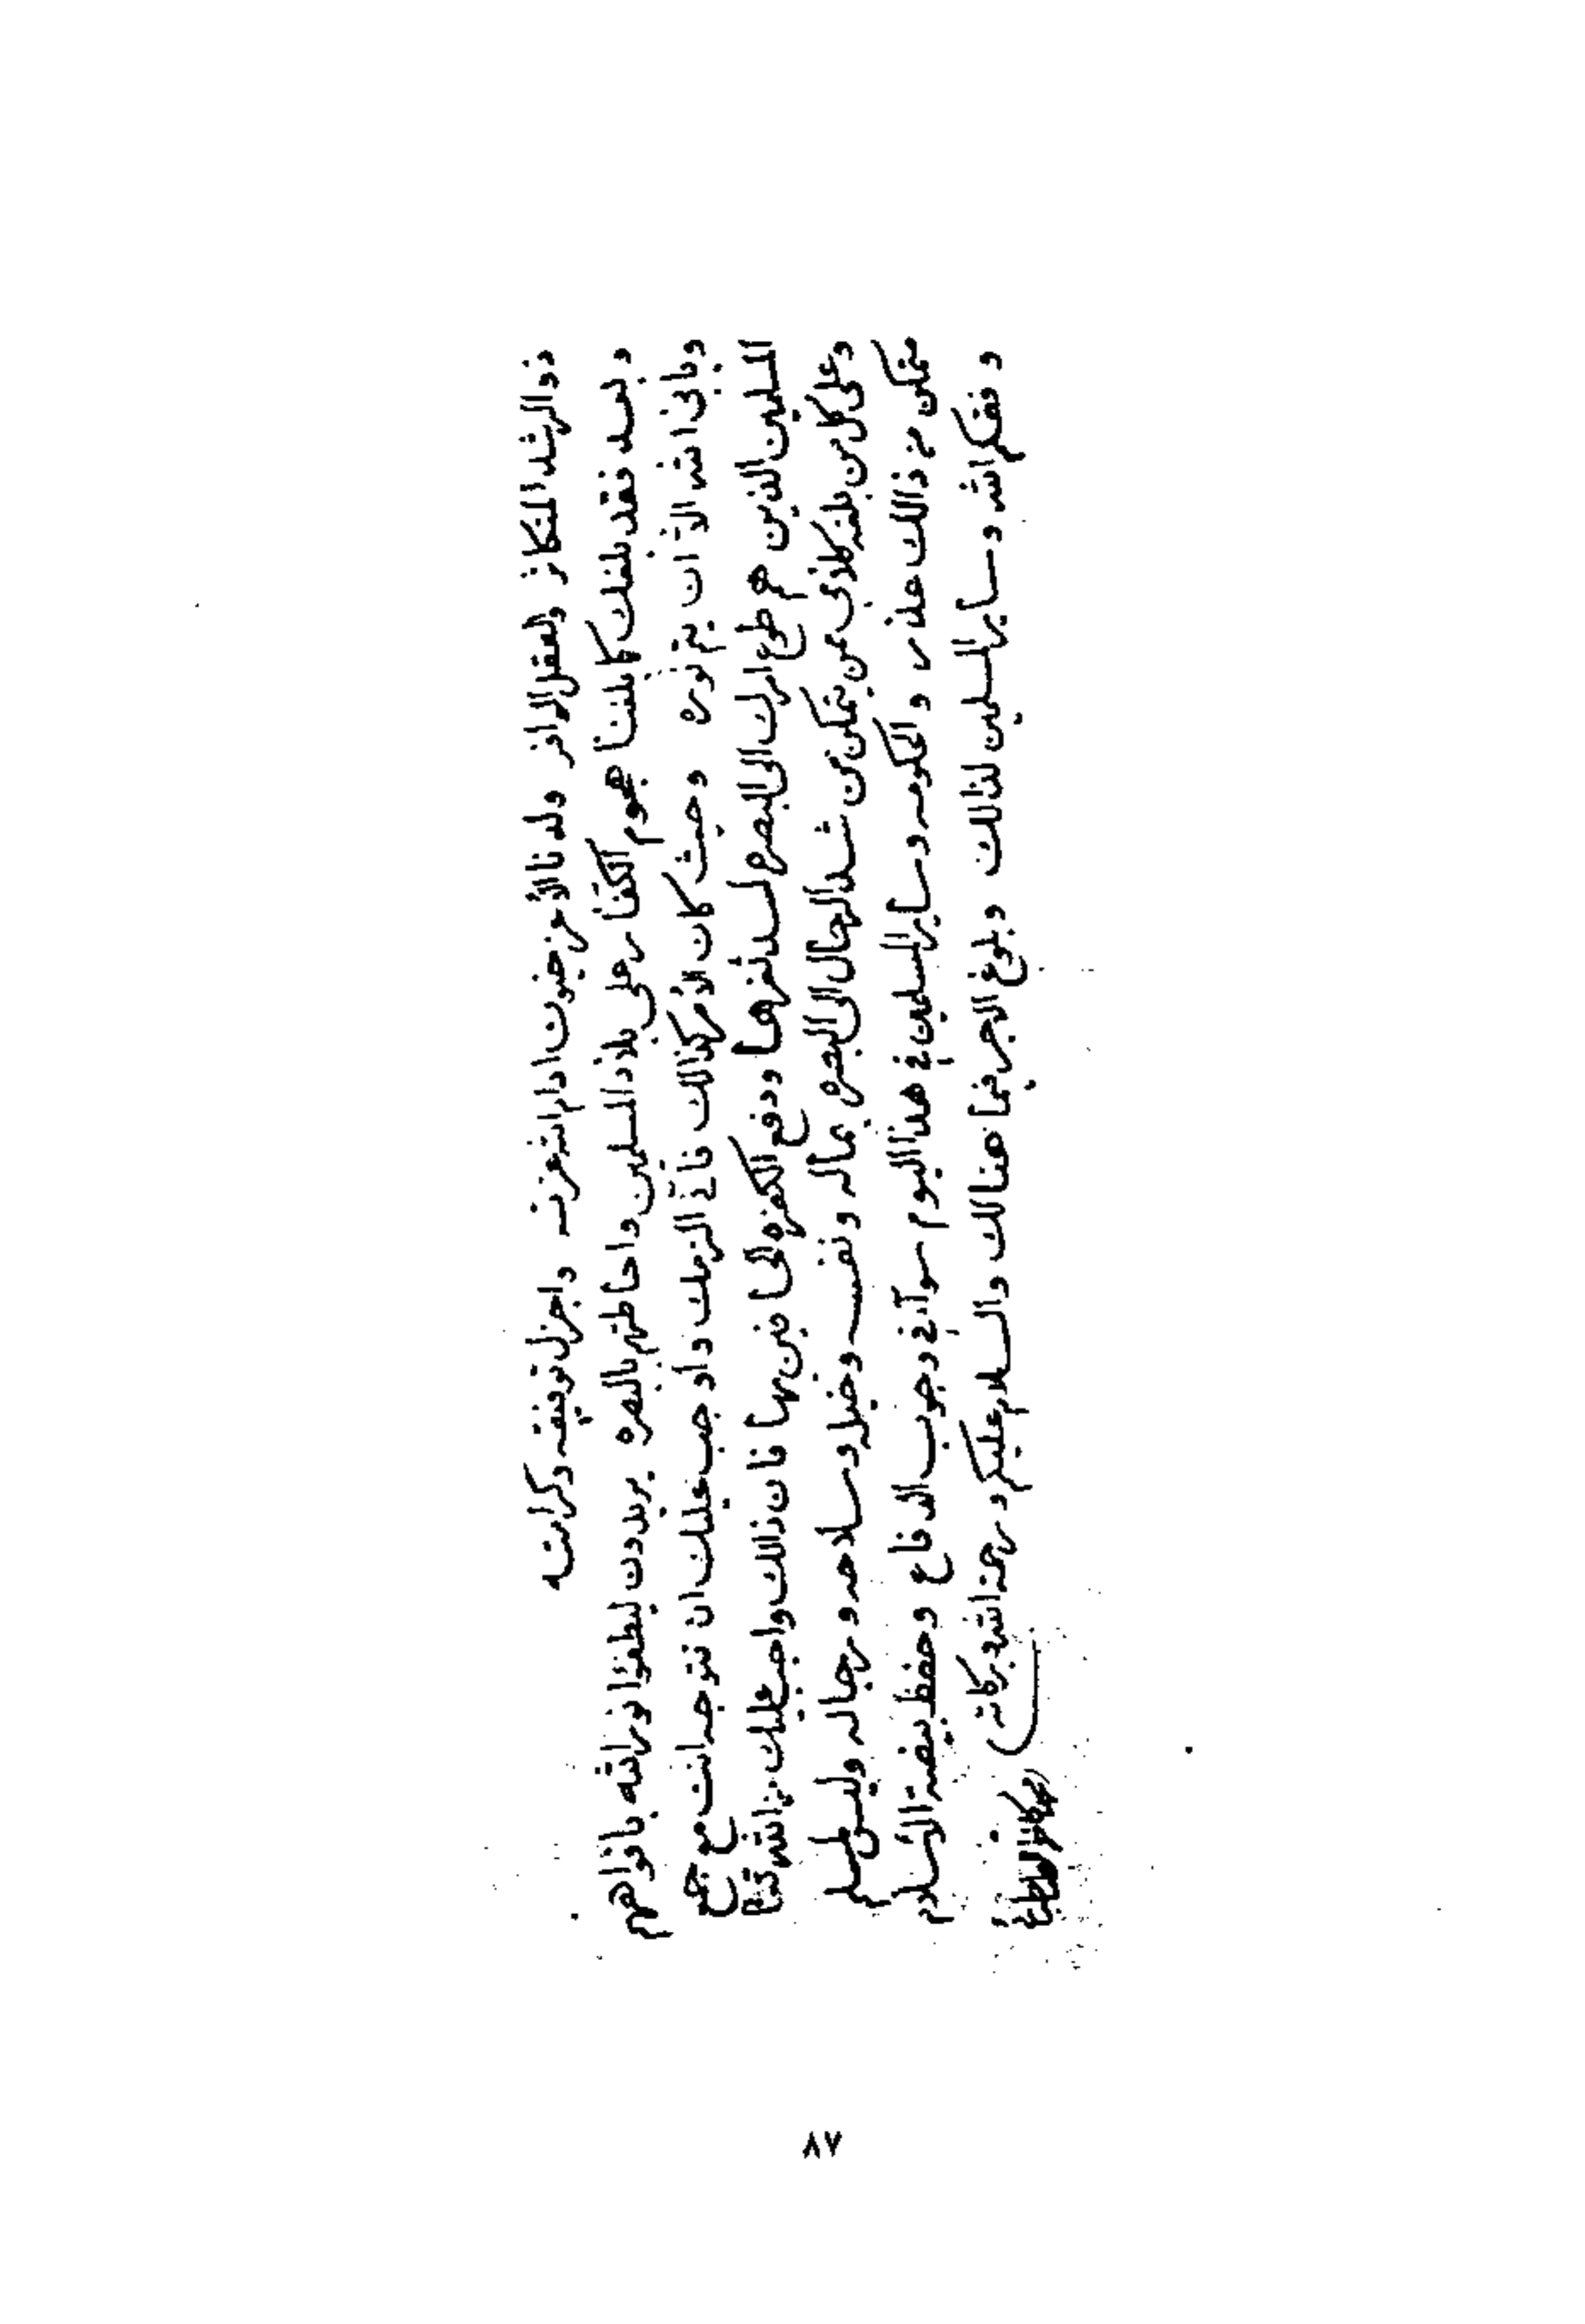 ذو الرشد الظاهر والعقل الوافر ولدنا الأمير خيون ادام الله عزه واجزل توفيقه وكرامته
وبعد فقد بلغك كما بلغنا هجوم الكفار على بلاد المسلمين واحاطتهم بالبصرة يريدون ليطفئوا نور الله بافواههم
ويأبى الله الا ان يتم نوره وحيث كان الأمر كذلك فاللازم عليك وأوجب عليك ان تتوجه انت مع جميع
المسلمين الذين هم طوع امرك الى البصرة لسد ثغرها ودفع الكفرة عنها فان ذلك واجب عليك
وعلى كل من بلغه كلامي ممن يتمكن من شد الرحال الى البصرة بماله ونفسه وخيله وسلاحه ورجاله وليس لمسلم
يتمكن من ذلك عذر والحكومة وسائر المسلمين في هذا اليوم سواء في وجوب الدفاع وحفظ بيضة الاسلام
وفقكم الله وسائر المسلمين لذلك والسلام عليكم ورحمة الله وبركاته
٨٧